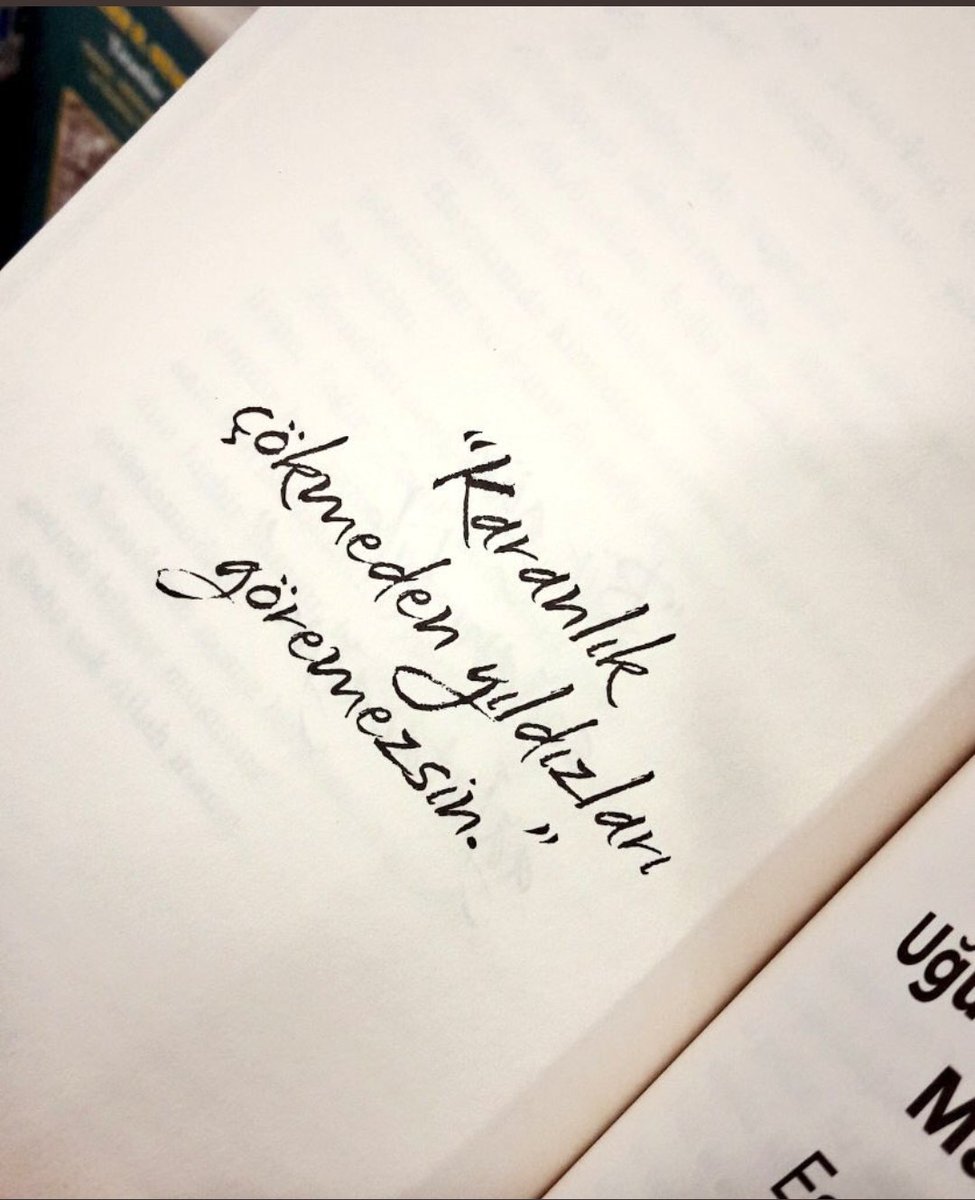 “Karanlık
çökmeden yıldızları
göremezsin.”